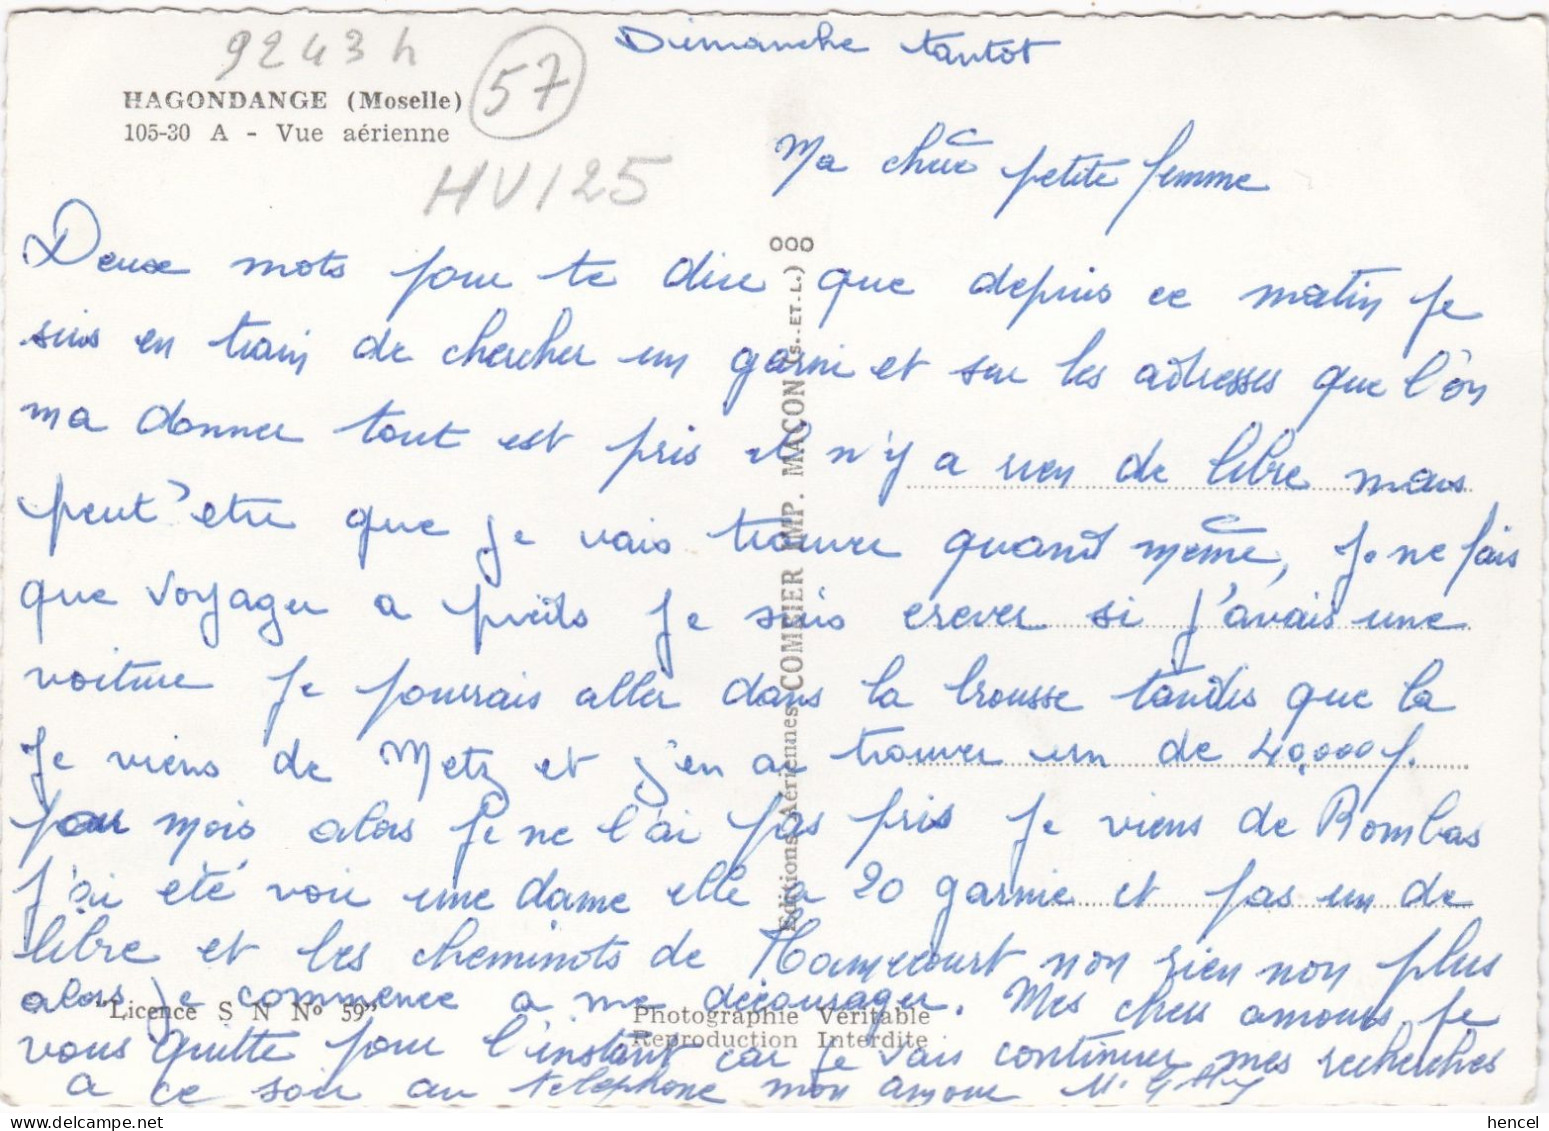 9243h
57
HAGONDANGE (Moselle)
105-30 A - Vue aérienne
HV125
Dimanche tantot
Ma chère petite femme
Deux mots pour te dire que depuis ce matin je
suis en train de chercher un garni et sur les adresses que l'on
ma donner tout est pris il n'y a rien de libre mais
peut'etre que je vais trouver quand même, je ne fais
que voyager a pieds je suis crever si j'avais une
voiture je pourrais aller dans la brousse tandis que la
je viens de Metz et j'en ai trouver un de 40.000 f.
par mois alors je ne l'ai pas pris je viens de Rombas
j'ai été voir une dame elle a 20 garnie et pas un de
libre et les cheminots de Homecourt non rien non plus
alors je commence a me décourager. Mes chers amours je
vous quitte pour l'instant car je vais continuer mes recherches
a ce soir au telephone mon amour
Editions Aériennes COMBIER IMP. MACON (S.-ET-L.) 000
"Licence S N No 59"
Photographie Véritable
Reproduction Interdite
hencel